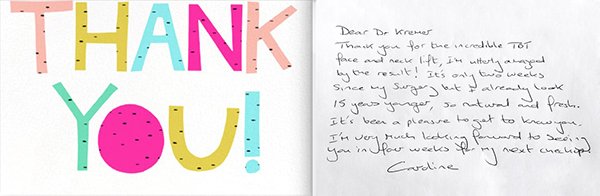 THANK
YOU!
Dear Dr Kremer
Thank you for the incredible TBT
face and neck lift, I'm utterly amazed
by the result! It's only two weeks
since my surgery but I already look
15 years younger, so natural and fresh.
It's been a pleasure to get to know you.
I'm very much looking forward to seeing
you in few weeks for my next checkup!
Caroline